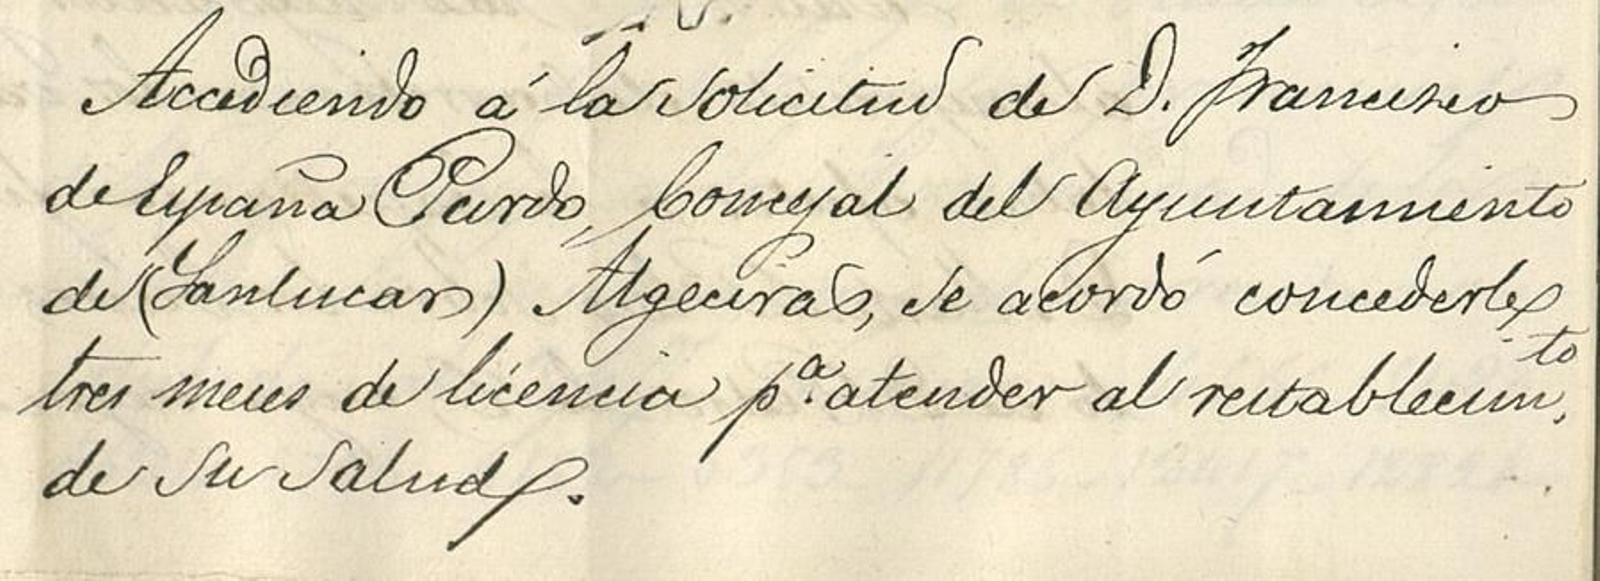 Accediendo á la solicitud de D. Francisco
de España Pardo, Concejal del Ayuntamiento
de (Sanlucar) Algeciras, se acordó concederle
tres meses de licencia p.ª atender al restablecim.to
de su salud.